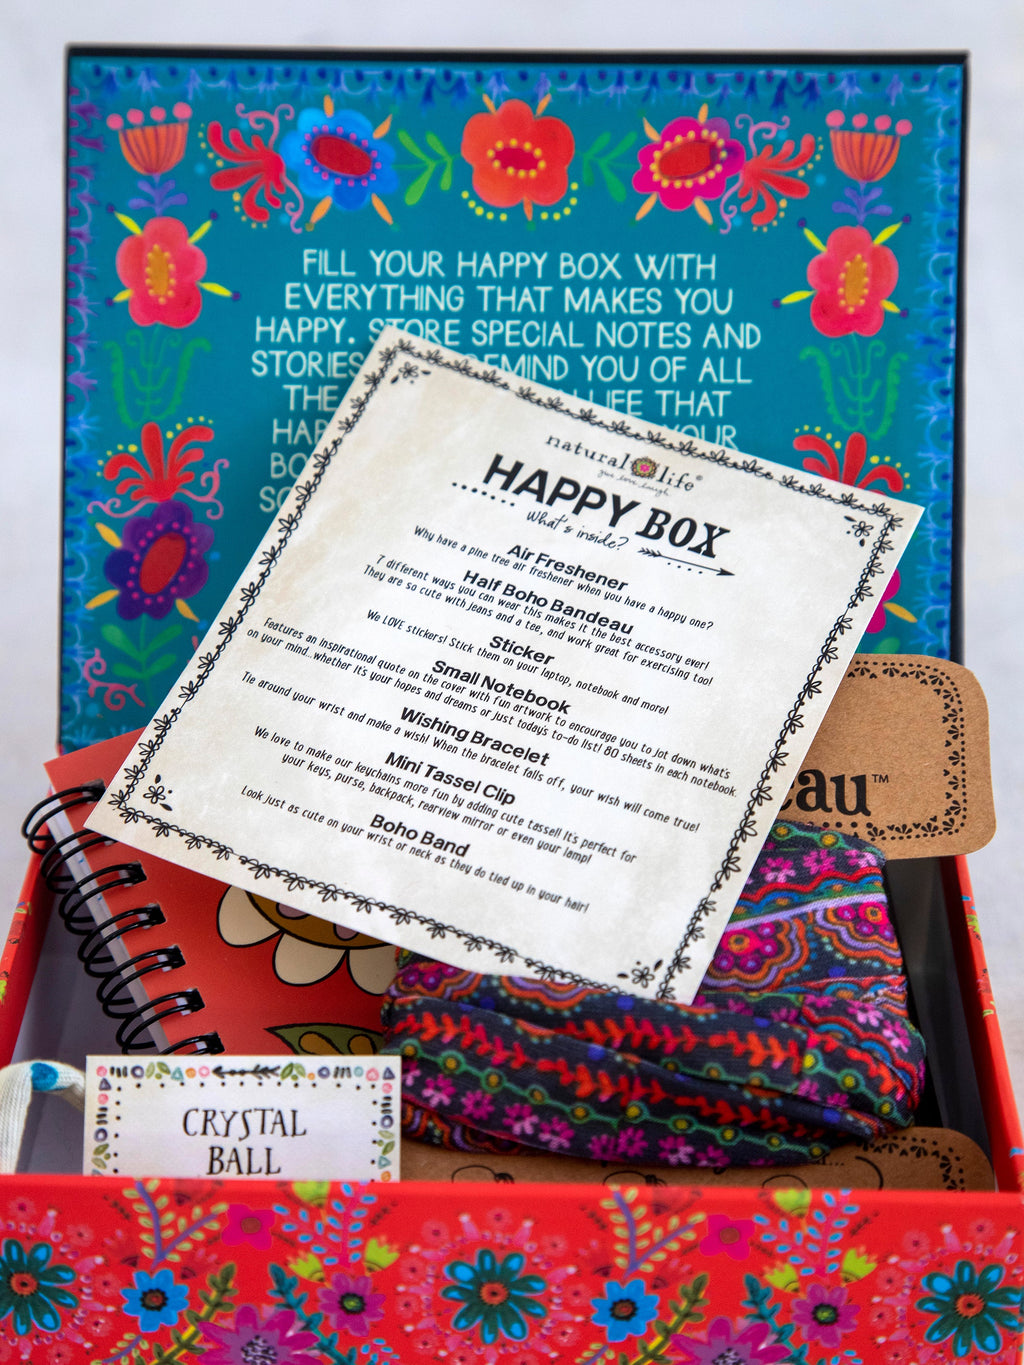 FILL YOUR HAPPY BOX WITH
EVERYTHING THAT MAKES YOU
HAPPY. STORE SPECIAL NOTES AND
STORIES REMIND YOU OF ALL
THE LIFE THAT
YOUR
natural life®
give love laugh
HAPPY BOX
What's inside?
Air Freshener
Why have a pine tree air freshener when you have a happy one?
Half Boho Bandeau
7 different ways you can wear this makes it the best accessory ever!
They are so cute with jeans and a tee, and work great for exercising too!
Sticker
We LOVE stickers! Stick them on your laptop, notebook and more!
Small Notebook
Features an inspirational quote on the cover with fun artwork to encourage you to jot down what's
on your mind...whether it's your hopes and dreams or just today's to-do list! 80 sheets in each notebook.
Wishing Bracelet
Tie around your wrist and make a wish! When the bracelet falls off, your wish will come true!
Mini Tassel Clip
We love to make our keychains more fun by adding cute tassel! It's perfect for
your keys, purse, backpack, rearview mirror or even your lamp!
Boho Band
Look just as cute on your wrist or neck as they do tied up in your hair!
eau™
CRYSTAL
BALL